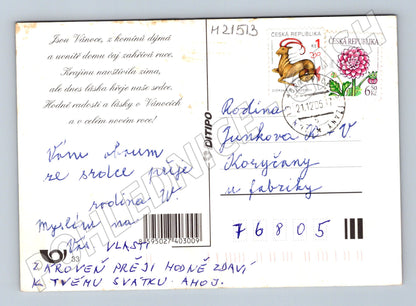 Jsou Vánoce, z komínů dýmá
a uvnitř domu čaj zahřívá ruce.
Krajinu navštívila zima,
ale dnes láska hřeje naše srdce.
Hodně radosti a lásky o Vánocích
a o celém novém roce!
Vám oboum
ze srdce přeje
rodina V.
Myslíme na
Vás VLASTA
ZÁROVEŇ PŘEJI HODNĚ ZDRAVÍ
K TVÉMU SVÁTKU. AHOJ.
33
8595027403009
DITIPO
M21513
ČESKÁ REPUBLIKA
1
Kč
ČESKÁ REPUBLIKA
6,50
21.12.05
Rodina
Junkova K + V
Koryčany
u fabriky
76805
POHLEDNICE